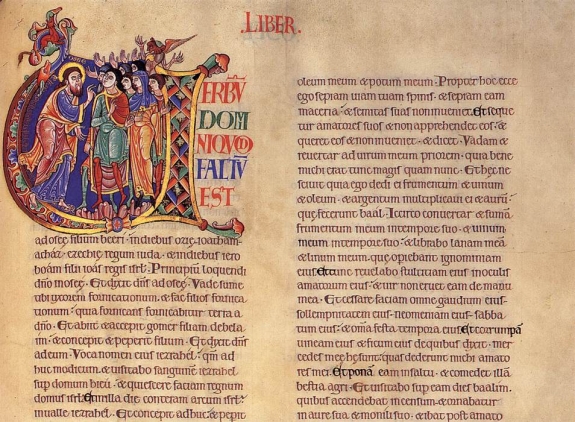 .LIBER.
VERBŪ
DOMI
NI QUOD
FACTŪ
EST
ad osee filium beeri · indiebus ozie · ioatham·
achaz · ezechie regum iuda · & indiebus iero
boam filii ioas regis isrl̄ · Principiū loquendi
dn̄o inosee · Et dixit dn̄s ad osee · Vade sume
tibi uxorem fornicationum · & fac filios fornica
tionum · quia fornicans fornicabitur terra a
dn̄o · Et abiit & accepit gomer filiam debela
im · & concepit & peperit filium · Et dixit dn̄s
ad eum · Voca nomen eius iezrahel · qm̄ ad
huc modicum & uisitabo sanguinē iezrahel
sup domum hieu · & quiescere faciam regnum
domus isrl̄ · Et in illa die conteram arcum isrl̄
inualle iezrahel · Et concepit adhuc & pepit
oleum meum & potum meum · Propter hoc ecce
ego sepiam uiam tuam spinis · & sepiam eam
maceria · & semitas suas non inueniet · Et seque
tur amatores suos & non apprehendet eos · &
queret eos & non inueniet · & dicet · Vadam &
reuertar ad uirum meum priorem · quia bene
michi erat tunc magis quam nunc · Et hec ne
sciuit quia ego dedi ei frumentum & uinum
& oleum · & argentum multiplicaui ei & aurū·
que fecerunt baal · Iccirco conuertar & sumā
frumentum meum intempore suo · & uinum
meum intempore suo · & liberabo lanam meā
& linum meum · que opiebant ignominiam
eius · Et nunc reuelabo stulticiam eius inoculis
amatorum eius · & uir non eruet eam de manu
mea · Et cessare faciam omne gaudium eius·
sollempnitatem eius · neomeniam eius · sabba
tum eius · & om̄a festa tempora eius · Et corumpā
uineam eius & ficum eius de quibus dixit · mer
cedes mee he sunt · quas dederunt michi amato
res mei · Et ponā eam insaltū · & comedet illā
bestia agri · Et uisitabo sup eam dies baalim·
quibus accendebat incensum · & ornabatur
inaure sua & monili suo · & ibat post amato